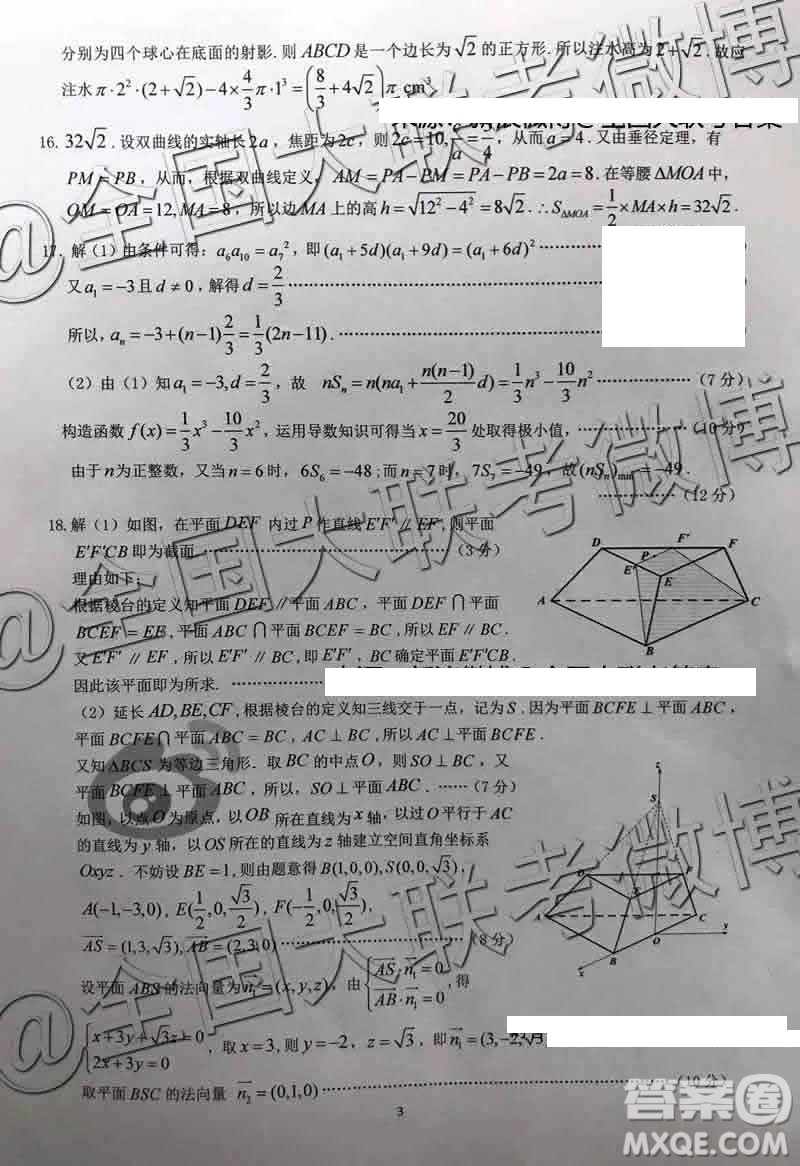 分别为四个球心在底面的射影.则 ABCD 是一个边长为 √2 的正方形.所以注水高为 2+√2 .故应
注水 π·2²·(2+√2)-4×4/3π·1³=(8/3+4√2)π cm³
16. 32√2 .设双曲线的实轴长 2a ，焦距为 2c ，则 2c=10, ，从而 a=4 .又由垂径定理，有
PM=PB ，从而，根据双曲线定义， AM=PA-PM=PA-PB=2a=8 .在等腰 ΔMOA 中，
OM=OA=12,MA=8 ，所以边 MA 上的高 h=√(12²-4²)=8√2 . ∴S_ΔMOA=1/2×MA×h=32√2 .
17. 解（1）由条件可得：a₆a₁₀=a₇² ，即 (a₁+5d)(a₁+9d)=(a₁+6d)²
又 a₁=-3 且 d≠0 ，解得 d=2/3
所以，aₙ=-3+(n-1)2/3=1/3(2n-11) .
（2）由（1）知 a₁=-3,d=2/3 ，故 nSₙ=n(na₁+n(n-1)/2 d)=1/3n³-10/3n² （7分）
构造函数 f(x)=1/3x³-10/3x² ，运用导数知识可得当 x=20/3 处取得极小值， （10分）
由于 n 为正整数，又当 n=6 时， 6S₆=-48 ;而 n=7 时， 7S₇=-49 ，故 (nSₙ)min=-49 .
（12分）
18. 解（1）如图，在平面 DEF 内过 P 作直线 E'F' // EF ,则平面
E'F'CB 即为截面 （3分）
理由如下：
根据棱台的定义知平面 DEF // 平面 ABC ，平面 DEF ∩ 平面
BCEF=EF ，平面 ABC ∩ 平面 BCEF=BC ，所以 EF // BC .
又 E'F' // EF ，所以 E'F' // BC ，即 E'F' ，BC 确定平面 E'F'CB .
因此该平面即为所求.
D F' F P E' E A C B
（2）延长 AD,BE,CF ,根据棱台的定义知三线交于一点，记为 S . 因为平面 BCFE ⊥ 平面 ABC ，
平面 BCFE ∩ 平面 ABC=BC , AC⊥BC , 所以 AC⊥平面 BCFE .
又知 ΔBCS 为等边三角形．取 BC 的中点 O ，则 SO⊥BC ，又
平面 BCFE⊥平面 ABC ，所以， SO⊥平面 ABC . ……（7分）
如图，以点 O 为原点，以 OB 所在直线为 x 轴，以过 O 平行于 AC
的直线为 y 轴，以 OS 所在的直线为 z 轴建立空间直角坐标系
Oxyz . 不妨设 BE=1 ,则由题意得 B(1,0,0),S(0,0,√3) ,
A(-1,-3,0), E(1/2,0,√3/2), F(-1/2,0,√3/2),
AS=(1,3,√3),AB=(2,3,0) （8分）
z S D F E A C O B y x
设平面 ABS 的法向量为 n₁=(x,y,z) ，由 {AS·n₁=0 AB·n₁=0 ,得
{x+3y+√3z=0 2x+3y=0 ，取 x=3 ,则 y=-2 ，z=√3 ，即 n₁=(3,-2,
取平面 BSC 的法向量 n₂=(0,1,0) （10分）
3
@全国大联考微博
@全国大联考微博
答案圈
MXQE.COM